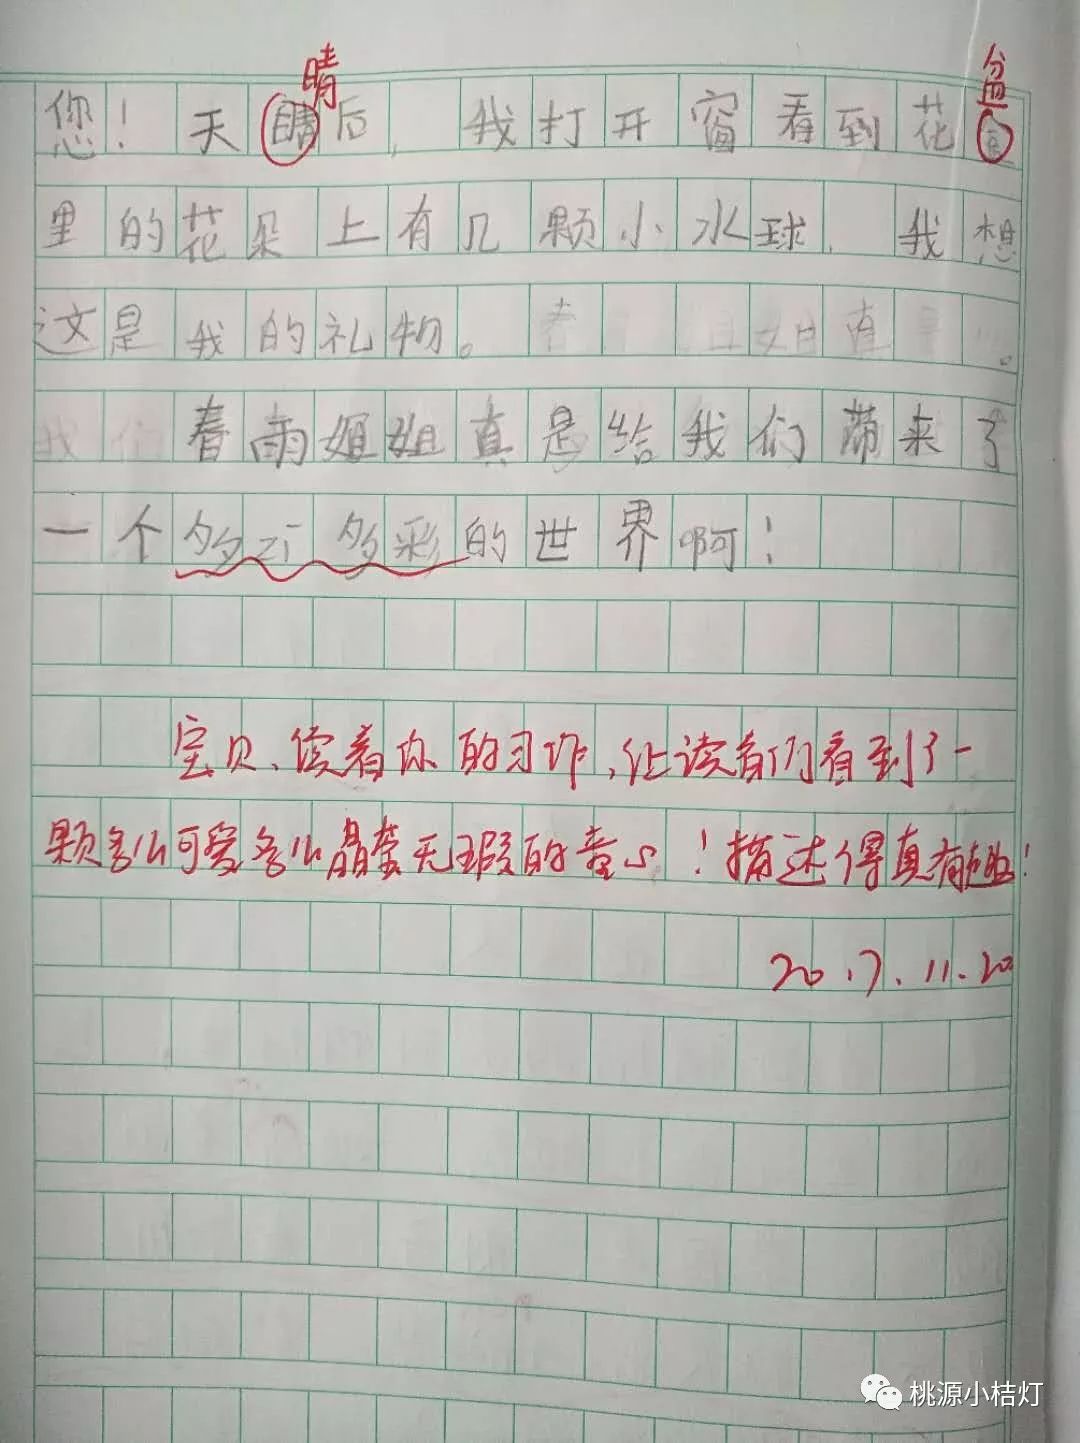 晴
盆
您！天睛后，我打开窗看到花
里的花朵上有几颗小水球，我想
这是我的礼物。
春雨姐姐真是给我们带来了
一个多多彩的世界啊！
宝贝、读着你的习作，让读者们看到了一
颗多么可爱多么晶莹无瑕的童心！描述得真有趣！
2017.11.20
桃源小桔灯